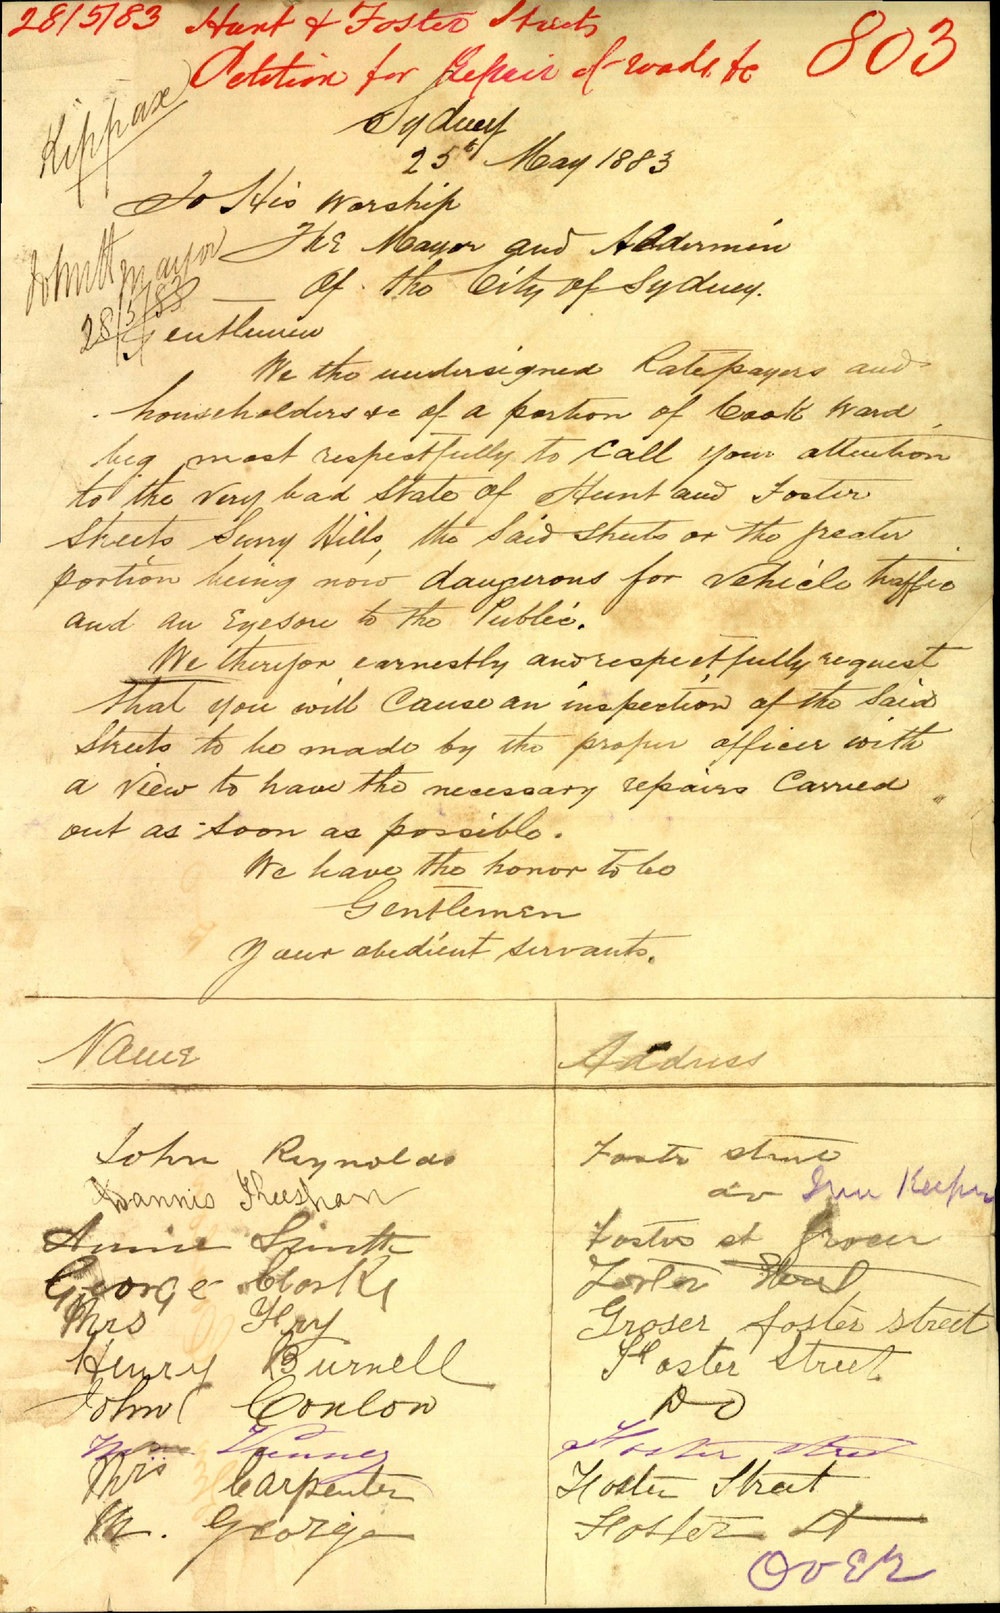 28/5/83 Hunt & Foster Streets
Petition for Repair of roads &c
803
Kippax
Sydney
25th May 1883
To His Worship
The Mayor and Aldermen
Of the City of Sydney.
Mayor
28/5/83
Gentlemen
We the undersigned Ratepayers and
householders &c of a portion of Cook Ward
beg most respectfully to call your attention
to the very bad state of Hunt and Foster
Streets Surry Hills, the said streets or the greater
portion being now dangerous for vehicle traffic
and an Eyesore to the Public.
We therefor earnestly and respectfully request
that you will cause an inspection of the said
Streets to be made by the proper officer with
a view to have the necessary repairs carried
out as soon as possible.
We have the honor to be
Gentlemen
Your obedient servants.
Name Address
John Reynolds Foster street
Sheehan do Inn Keeper
Annie Smith Foster st Grocer
George Clarke Foster Street
Mrs Fry Groser foster street
Henry Burnell Foster Street
John Conlon Do
Foster street
Mrs Carpenter Foster Street
M. George Foster St
OVER